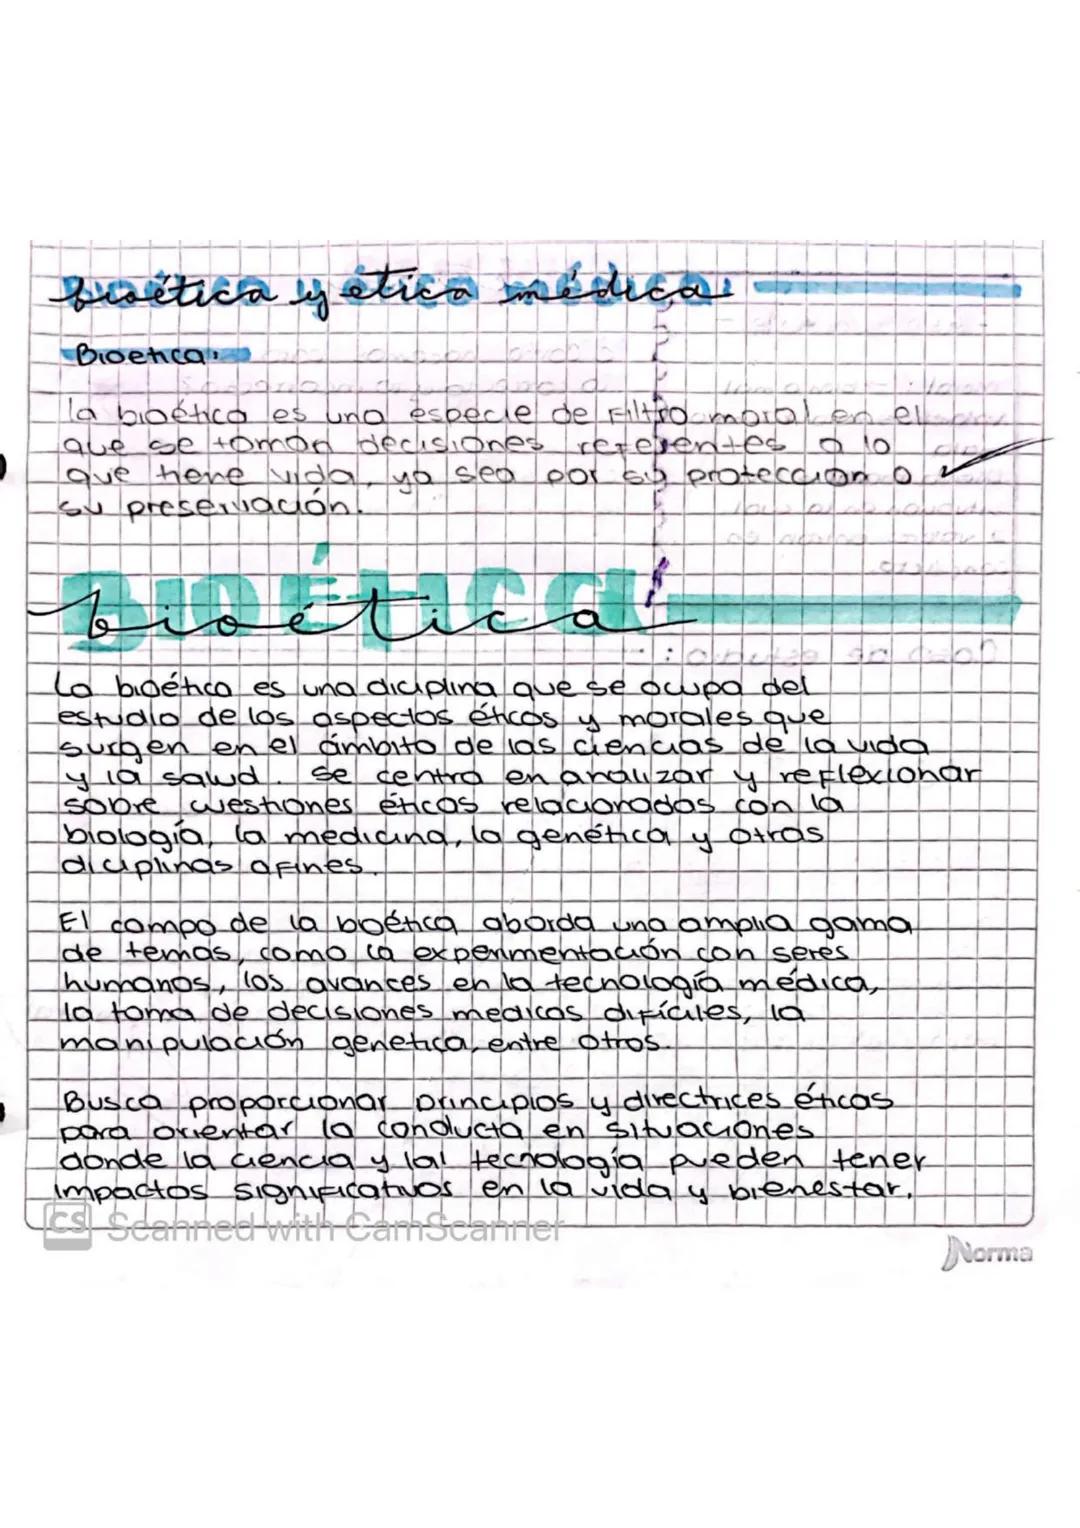 bioética y ética médica:
Bioetica:
la bioética es una especie de Filtro moral en el
que se toman decisiones referentes a lo
que tiene vida, ya sea por su protección o
su preservación.
BIOÉTICA
bioética
La bioética es una diciplina que se ocupa del
estudio de los aspectos éticos y morales que
surgen en el ámbito de las ciencias de la vida
y la salud. Se centra en analizar y reflexionar
sobre cuestiones éticas relacionadas con la
biología, la medicina, la genética y otras
diciplinas afines.
El campo de la bioética aborda una amplia gama
de temas, como la experimentación con seres
humanos, los avances en la tecnología médica,
la toma de decisiones medicas difíciles, la
manipulación genetica, entre otros.
Busca proporcionar principios y directrices éticas
para orientar la conducta en situaciones
donde la ciencia y la tecnología pueden tener
impactos significativos en la vida y bienestar.
CS Scanned with CamScanner
Norma